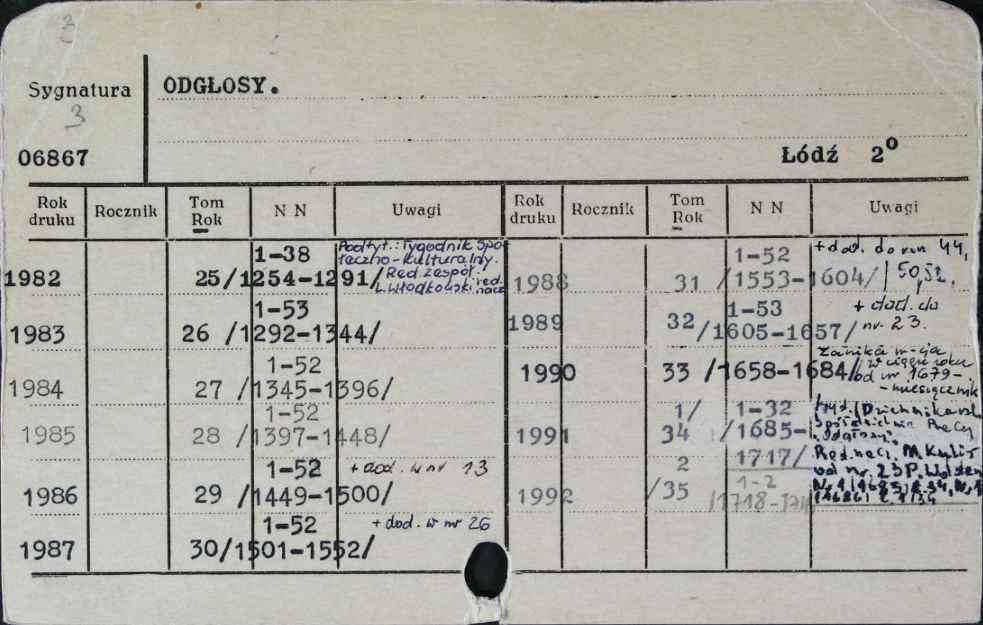 3
Sygnatura
3
06867
ODGŁOSY.
Łódź 2⁰
Rok druku Rocznik Tom Rok N N Uwagi
1982 25 1-38 /1254-1291/
Podtyt.: Tygodnik Spo-
łeczno-Kulturalny.
Red. zespół.
L. Włodkowski red. nacz.
1983 26 1-53 /1292-1344/
1984 27 1-52 /1345-1396/
1985 28 1-52 /1397-1448/
1986 29 1-52 /1449-1500/ + dod. w nr 13
1987 30 1-52 /1501-1552/ + dod. w nr 26
Rok druku Rocznik Tom Rok N N Uwagi
1988 31 1-52 /1553-1604/
+ dod. do nru 44,
50, 52.
1989 32 1-53 /1605-1657/
+ dod. do
nr. 23.
1990 33 /1658-1684/
Zanika
w ciągu roku
od nr 1679-
-miesięcznik
1991 1/34 1-32 /1685-1717/
Spółdzielnia Pracy
Red. nacz. M. Kulis
od nr. 23 P.
1992 2/35 1-2 /1718-